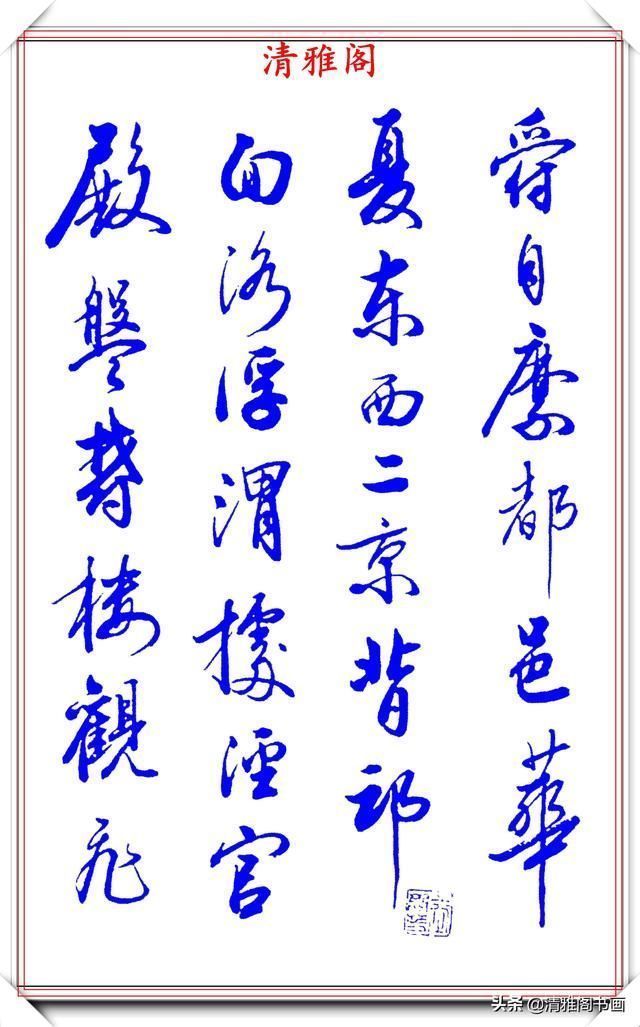 清雅阁
爵自縻都邑華
夏東西二京背邙
面洛浮渭據涇宮
殿盤鬱樓觀飛
头条 @清雅阁书画